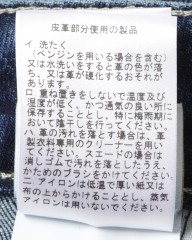 皮革部分使用の製品
イ. 洗たく
(ベンジンを用いる場合を含む)
又は水洗いをすると革の色が落
ち、又は革が硬化するおそれが
あります。
ロ. 重ね置きをしないで温度及び
湿度が低く、かつ通気の良い所に
保存することとし、特に梅雨期に
おいて陰干しを行ってください。
ハ. 革の汚れを落とす場合は、革
製衣料専用のクリーナーを用い
てください。スエードの場合は、
消しゴムで汚れを落としたうえ、
かためのブラシをかけてください。
ニ. アイロンは低温で厚い紙又は
布の上からかけることとし、蒸気
アイロンは用いないでください。